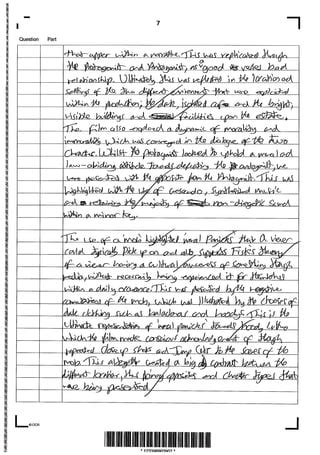 7
Question Part
that appear within a narrative. This was replicated through
the Protagonist and Antagonist, as good verses bad
relationship. Ultimately this was reflected in the location and
setting of the two different environments that were explicited
within the production; the dark, isolated cafe and the bright,
visible buildings and facilities upon the estate.
The film also explored a dynamic of morality and
immorality which was conveyed in the dialogue of the two
Characters. Whilst the protagonist looked to uphold a moral and
law-abiding attitude towards the
were presented with the opposite from the Antagonist. This was
highlighted with the use of crescendo, Synthesized music
and a majority of non-diegetic sound
within a minor key.
The use of a mob highlighted moral Panics that a viewer
could typically Pick up on and also supports Fiske's theory
of a viewer having a cultural awareness of something through
media, without necessarily having experienced it for themselves
within a daily occurance. This was presented by the negative
connotations of the mob, which was illustrated by the choices of
dark clothing such as balaclavas and hoody's. This is the
ultimate representation of moral panics towards
which the film made conscious acknowledgement of through
repeated close up shots and Jump Cuts to the faces of the
mob. This altogether created a big contrast between the
different location, thus binary opposites and character types that
are being presented.